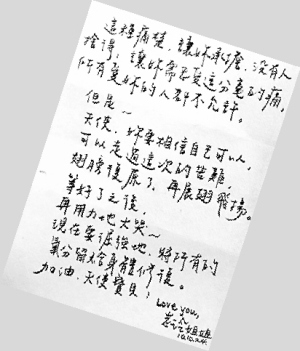 這種痛楚，讓妳承擔，沒有人
捨得，讓妳需承受這分毫的痛，
所有愛妳的人都不允許。
但是～
天使，妳要相信自己可以，
可以走過這次的苦難
翅膀復原了，再展翅飛揚。
等好了之後，
再用力地大哭～
現在要倔強地，將所有的
氣分留給身體修復。
加油，天使寶貝！
Love you,
姐姐